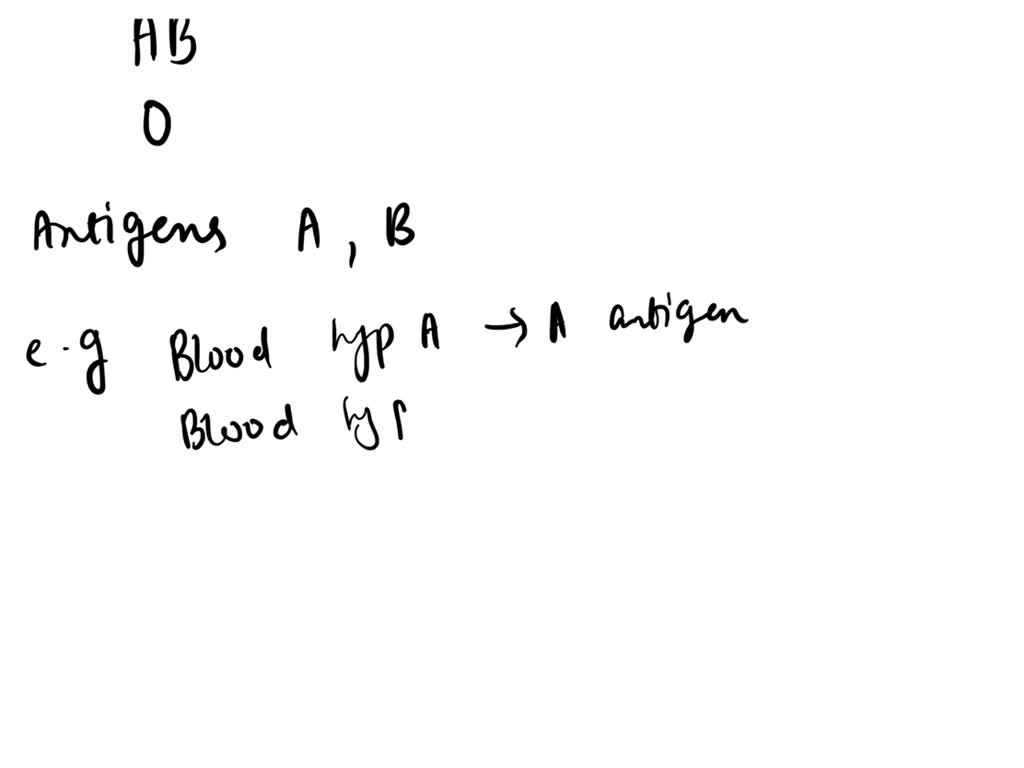 AB
O
Antigens A, B
e.g Blood typ A → A antigen
Blood typ